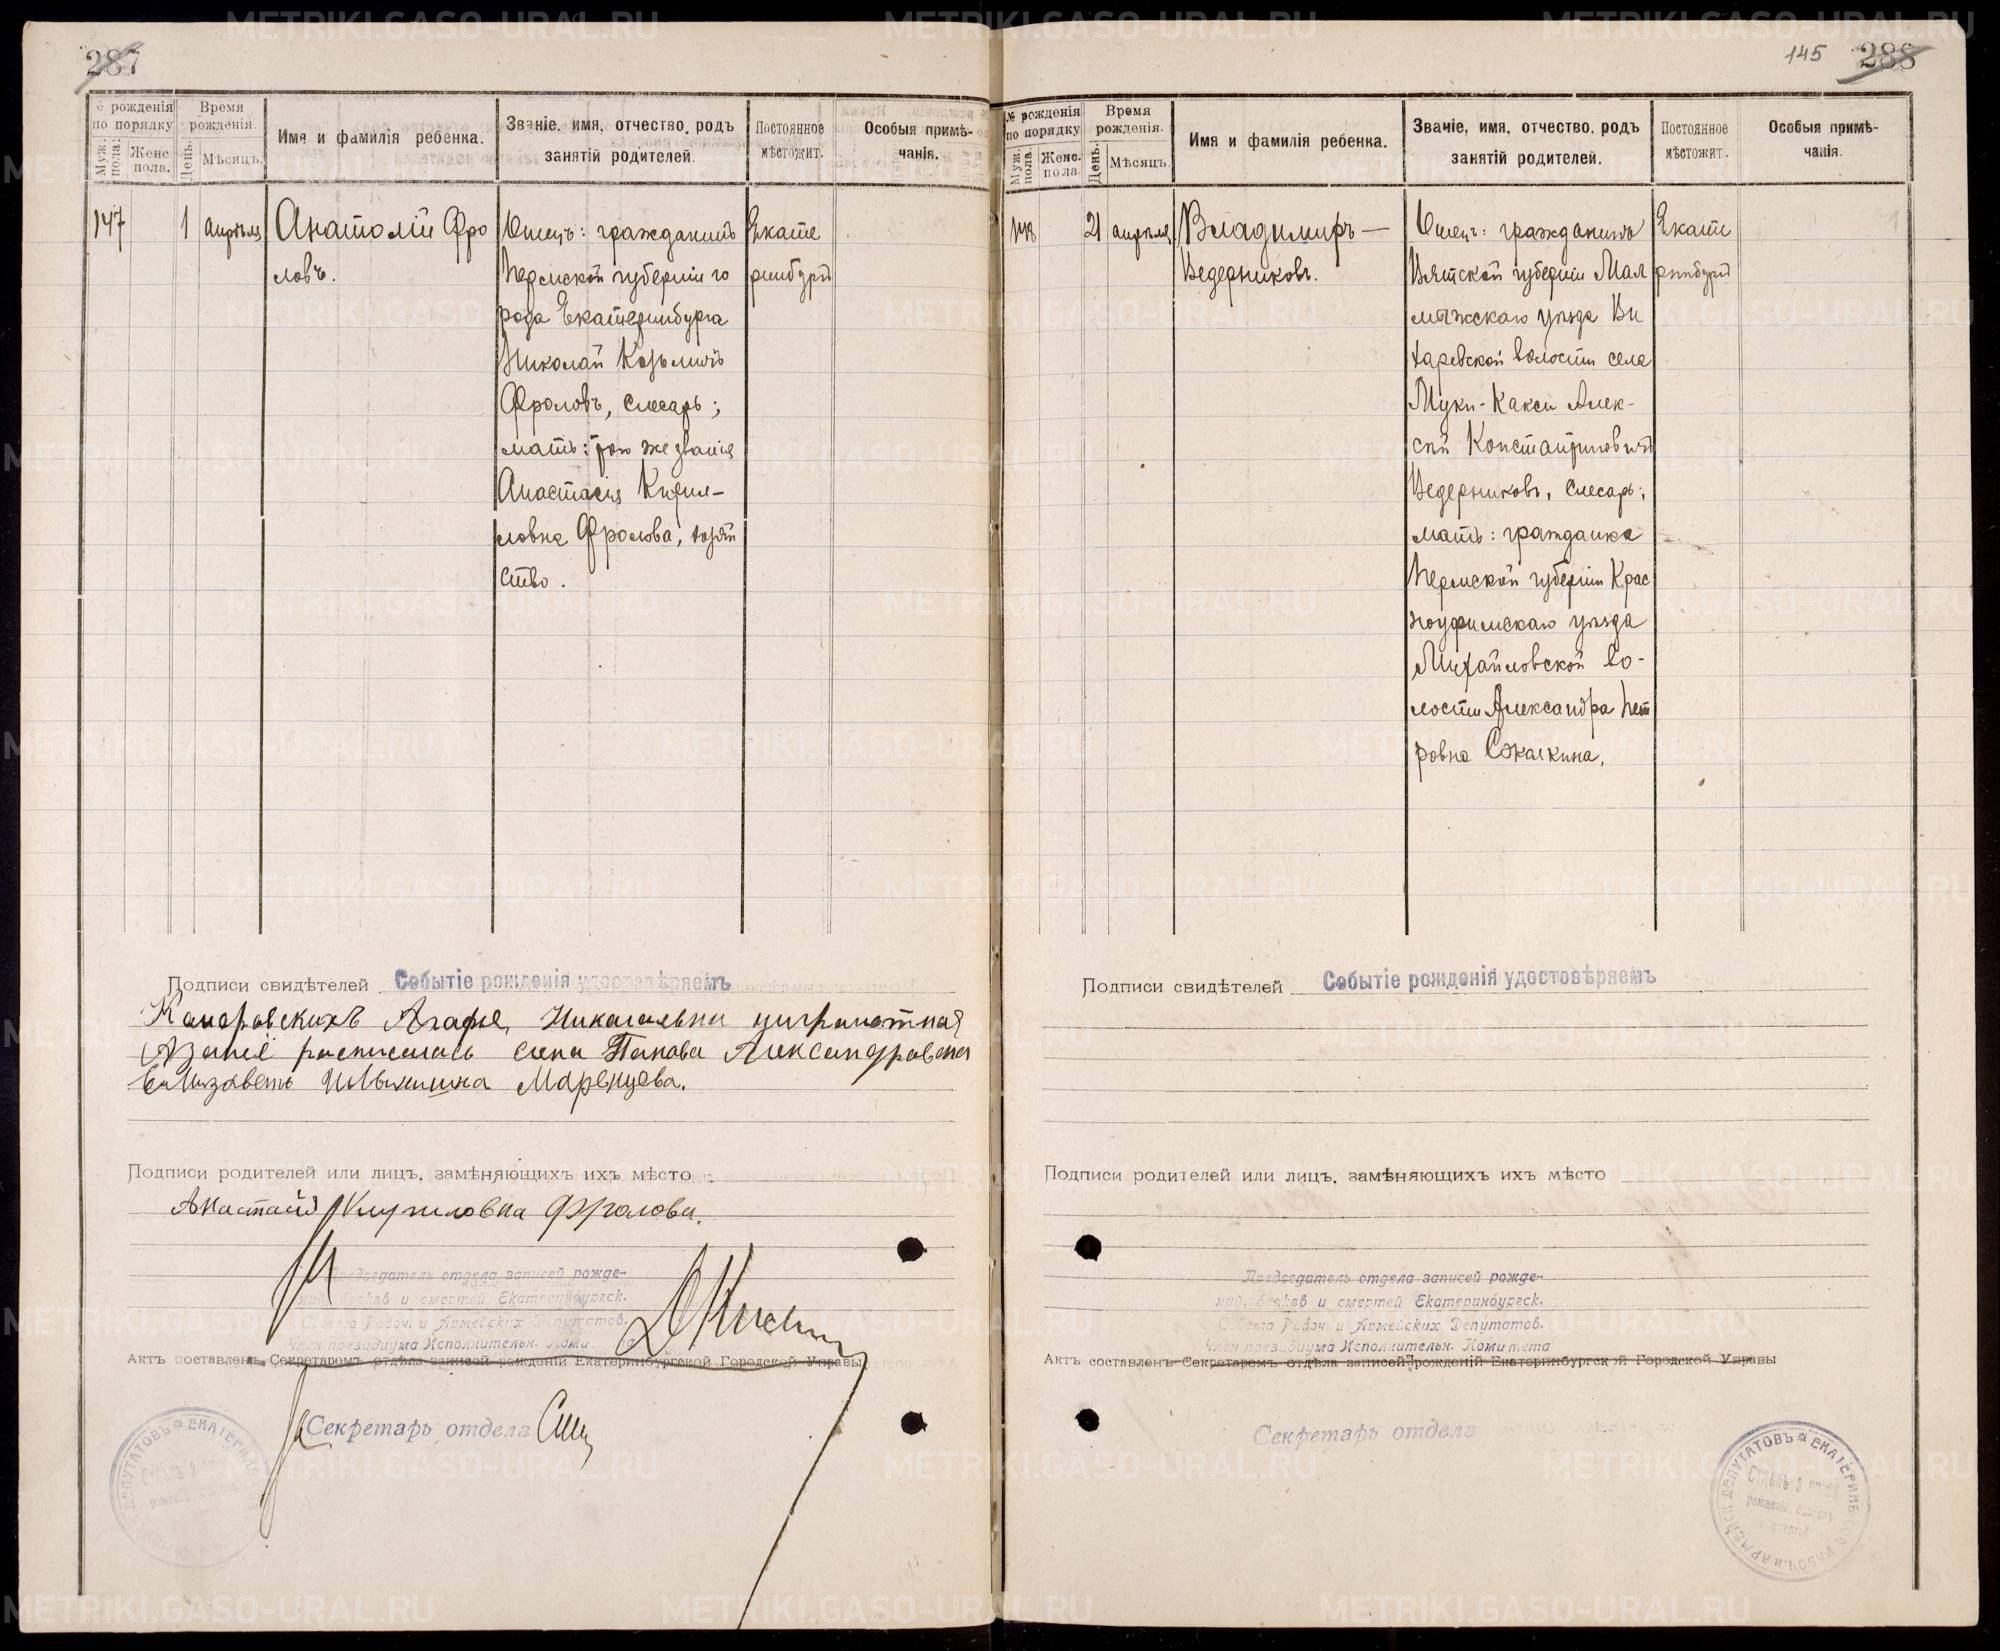 287
№ рожденія по порядку
Муж. пола.
Женс. пола.
Время рожденія.
День.
Мѣсяцъ.
Имя и фамилія ребенка.
Званіе, имя, отчество, родъ занятій родителей.
Постоянное мѣстожит.
Особыя примѣчанія.
147
1
апрѣля
Анатолій Фро
ловъ.
Отецъ: гражданинъ
Пермской губерніи го
рода Екатеринбурга
Николай Козьмичъ
Фроловъ, слесарь;
мать: того же званія
Анастасія Кирил-
ловна Фролова, хозяй
ство.
Екате
ринбургъ
Подписи свидѣтелей Событіе рожденія удостовѣряемъ
Комаровскихъ Агафья Николаевна
расписалась Александровна
Елизавета Маренцева.
Подписи родителей или лицъ, замѣняющихъ ихъ мѣсто
Кириловна Фролова.
Председатель отдела записей рожде-
ний, браков и смертей Екатеринбургск.
Совета Рабоч. и Армейских Депутатов.
Член президиума Исполнительн. Комитета
Актъ составленъ Секретаремъ отдѣла записей рожденій Екатеринбургской Городской Управы
Секретарь отдела
145 288
№ рожденія по порядку
Муж. пола.
Женс. пола
Время рожденія.
День.
Мѣсяцъ.
Имя и фамилія ребенка.
Званіе, имя, отчество, родъ занятій родителей.
Постоянное мѣстожит.
Особыя примѣчанія.
148
21
апрѣля
Владимиръ —
Ведерниковъ.
Отецъ: гражданинъ
Вятской губерніи Мал
мыжскаго уѣзда Ви
харевской волости села
Муки-Какси Алек-
сѣй Константиновичъ
Ведерниковъ, слесарь;
мать: гражданка
Пермской губерніи Крас
ноуфимскаго уѣзда
Михайловской во-
лости Александра Пет
ровна
Екате
ринбургъ
Подписи свидѣтелей Событіе рожденія удостовѣряемъ
Подписи родителей или лицъ, замѣняющихъ ихъ мѣсто
Председатель отдела записей рожде-
ний, браков и смертей Екатеринбургск.
Совета Рабоч. и Армейских Депутатов.
Член президиума Исполнительн. Комитета
Актъ составленъ Секретаремъ отдѣла записей рожденій Екатеринбургской Городской Управы
Секретарь отдела
METRIKI.GASO-URAL.RU